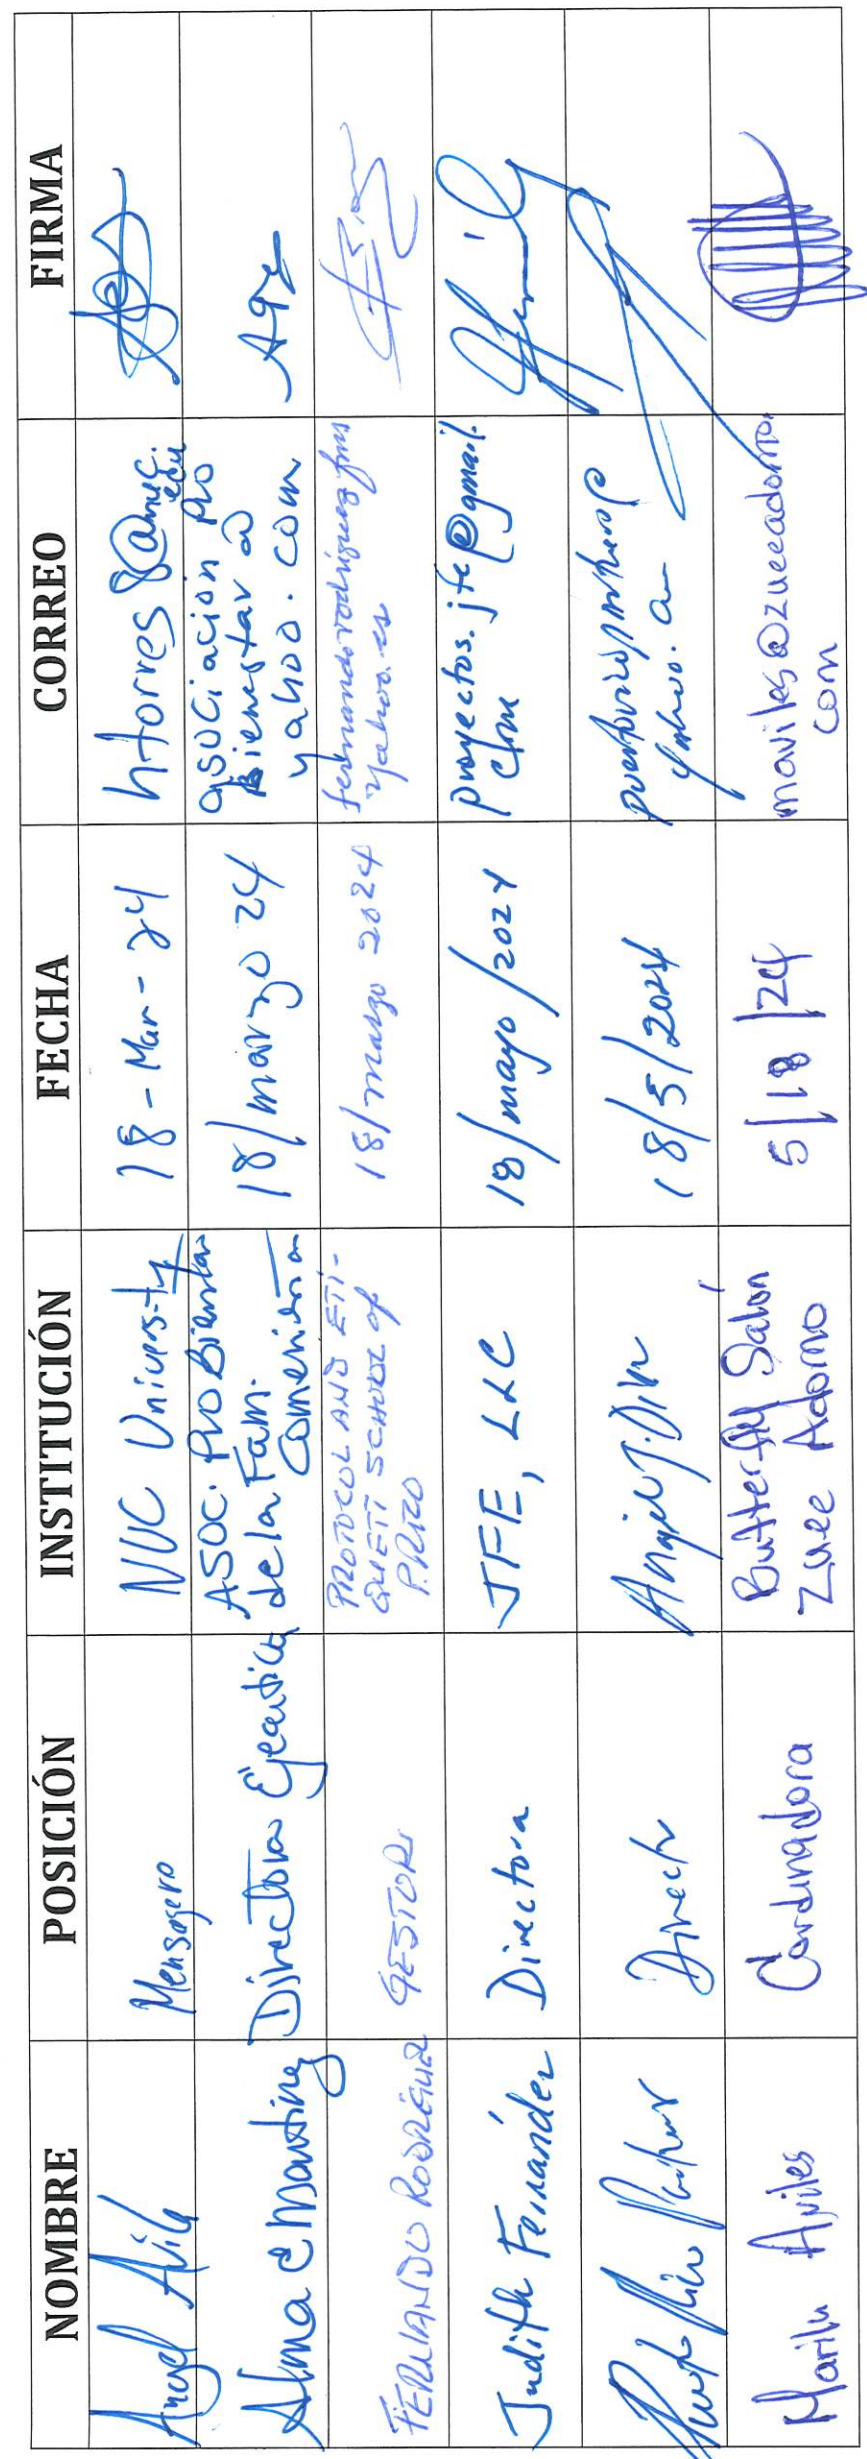 NOMBRE POSICIÓN INSTITUCIÓN FECHA CORREO FIRMA
Angel Avila Mensajero NUC University 18-Mar-24 htorres8@nuc.
edu
Alma C Martinez Directora Ejecutiva ASOC. Pro Bienestar
de la Fam.
Comerieña 18/marzo 24 asociación pro
bienestar @
yahoo.com
FERNANDO RODRÍGUEZ GESTOR PROTOCOL AND ETI-
QUETI SCHOOL OF
P.RICO 18/marzo 2024 fernandorodriguezfms
yahoo.es
Judith Fernández Directora JFE, LLC 18/mayo/2024 proyectos.jfe@gmail.
com
Puerto Rico Director Angel J. 18/5/2024
Marilu Aviles Cordinadora Butterfly Salón
Zuee Adorno 5/18/24 maviles@zueeadorno.
com